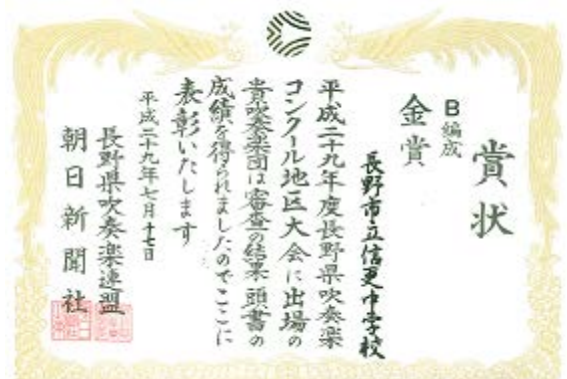 賞状
B編成
金賞
長野市立信更中学校
平成二十九年度長野県吹奏楽
コンクール地区大会に出場の
貴吹奏楽団は審査の結果頭書の
成績を得られましたのでここに
表彰いたします
平成二十九年七月十七日
長野県吹奏楽連盟
朝日新聞社